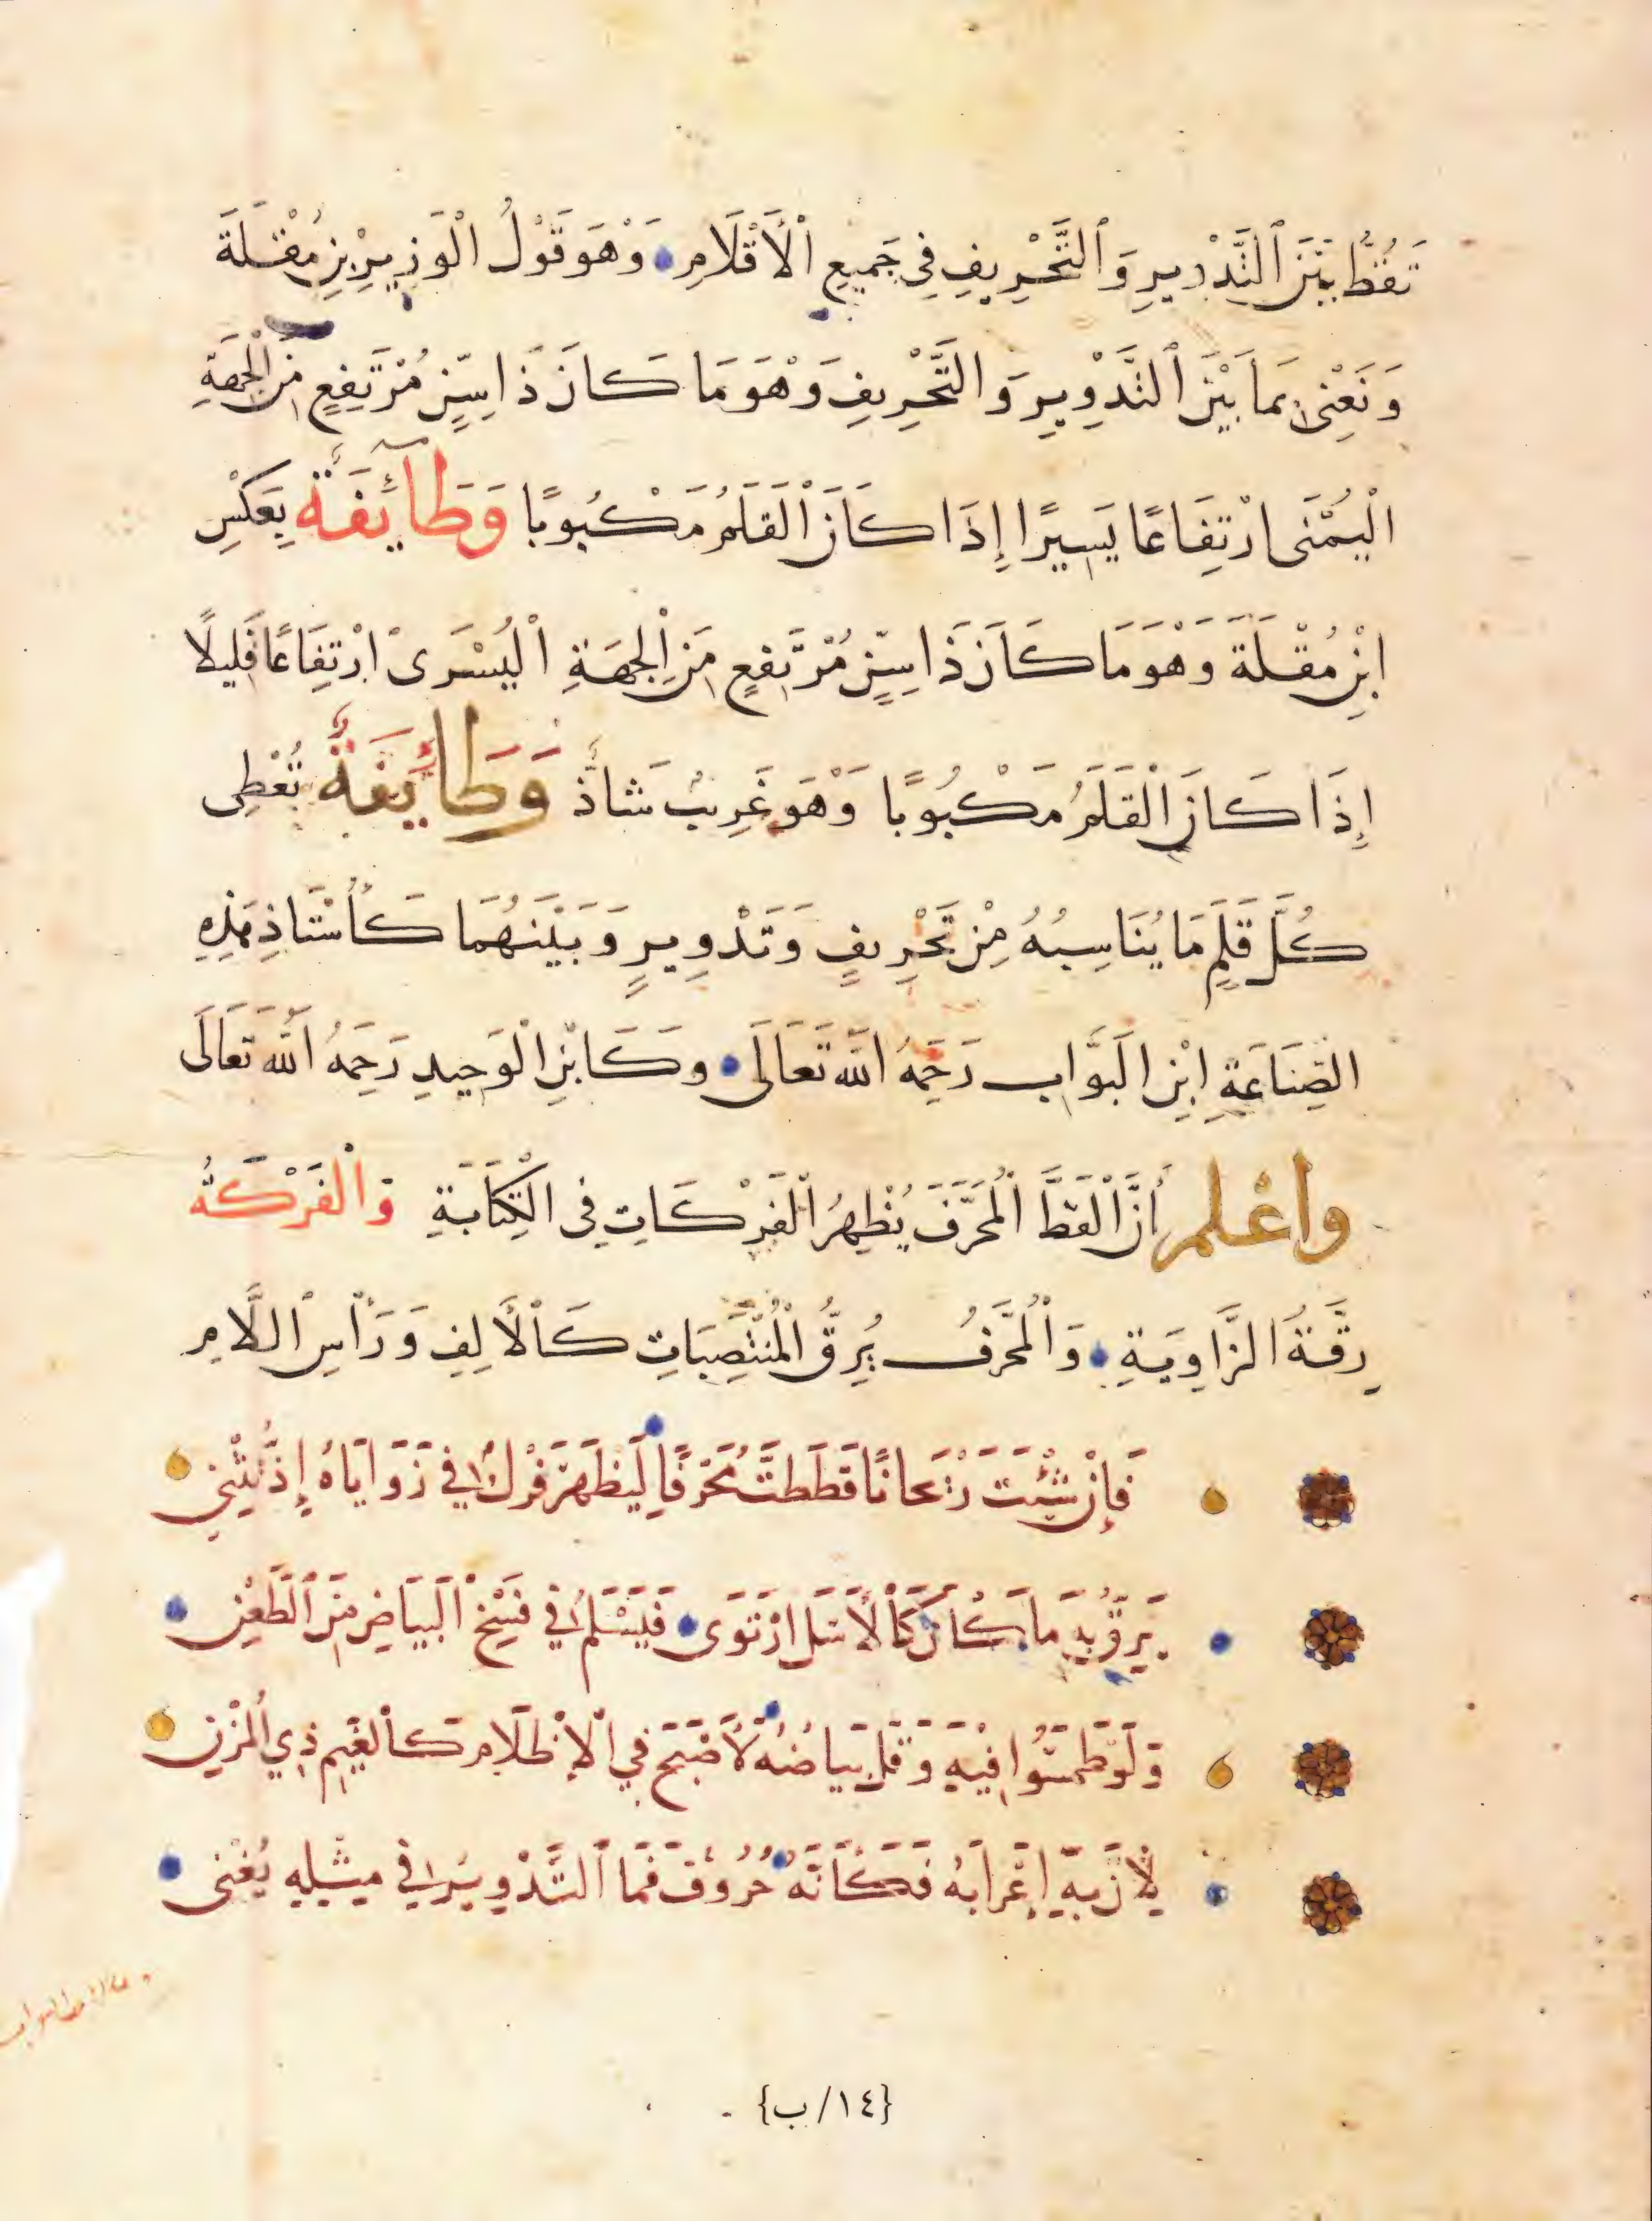 تَقُطُّ بَيْنَ ٱلتَّدْوِيرِ وَٱلتَّحْرِيفِ فِي جَمِيعِ ٱلْأَقْلَامِ وَهْوَ قَوْلُ الْوَزِيرِ بْنِ مُقْلَةَ
وَنَعْنِى بِمَا بَيْنَ ٱلتَّدْوِيرِ وَالتَّحْرِيفِ وَهْوَ مَا كَانَ ذَا سِنٍّ مُرْتَفِعٍ مِنَ الْجِهَةِ
الْيُمْنَى ارْتِفَاعًا يَسِيرًا إِذَا كَانَ الْقَلَمُ مَكْبُوبًا وَطَآئِفَةٌ بِعَكْسِ
ابْنِ مُقْلَةَ وَهْوَ مَا كَانَ ذَا سِنٍّ مُرْتَفِعٍ مِنَ الْجِهَةِ الْيُسْرَى ارْتِفَاعًا قَلِيلًا
إِذَا كَانَ الْقَلَمُ مَكْبُوبًا وَهْوَ غَرِيبٌ شَاذٌّ وَطَائِفَةٌ تُعْطِى
كُلَّ قَلَمٍ مَا يُنَاسِبُهُ مِنْ تَحْرِيفٍ وَتَدْوِيرٍ وَبَيْنَهُمَا كَأُسْتَاذِ هَذِهِ
الصِّنَاعَةِ ابْنِ الْبَوَّابِ رَحِمَهُ اللَّهُ تَعَالَى وَكَابْنِ الْوَحِيدِ رَحِمَهُ اللَّهُ تَعَالَى
واعلم أَنَّ الْقَطَّ الْمُحَرَّفَ يُظْهِرُ الْفَرْكَاتِ فِى الْكِتَابَةِ وَالْفَرْكَةُ
رِقَّةُ الزَّاوِيَةِ وَالْمُحَرَّفُ يُرِقُّ الْمُنْتَصِبَاتِ كَالْأَلِفِ وَرَأْسِ اللَّامِ
فَإِنْ شِئْتَ رَيْحَانًا قَطَطْتَ مُحَرَّفًا لِيَظْهَرَ فَرْكٌ فِي زَوَايَاهُ إِذْ تَثْنِي
يَرِقُّ بِهِ مَا كَانَ كَالْأَسَلِ ارْتَوَى فَيَسْلَمُ فِي فَسْخِ ٱلْبَيَاضِ مِنَ ٱلطَّعْنِ
وَلَوْ طَمَسُوا فِيهِ وَقَلَّ بَيَاضُهُ لَأَصْبَحَ فِي الْإِظْلَامِ كَالْغَيْمِ ذِي الْمُزْنِ
لِأَنَّ بِهِ إِعْرَابَهُ فَكَأَنَّهُ حُرُوفٌ فَمَا ٱلتَّدْوِيرُ فِي مِثْلِهِ يُغْنِى
{١٤/ب}